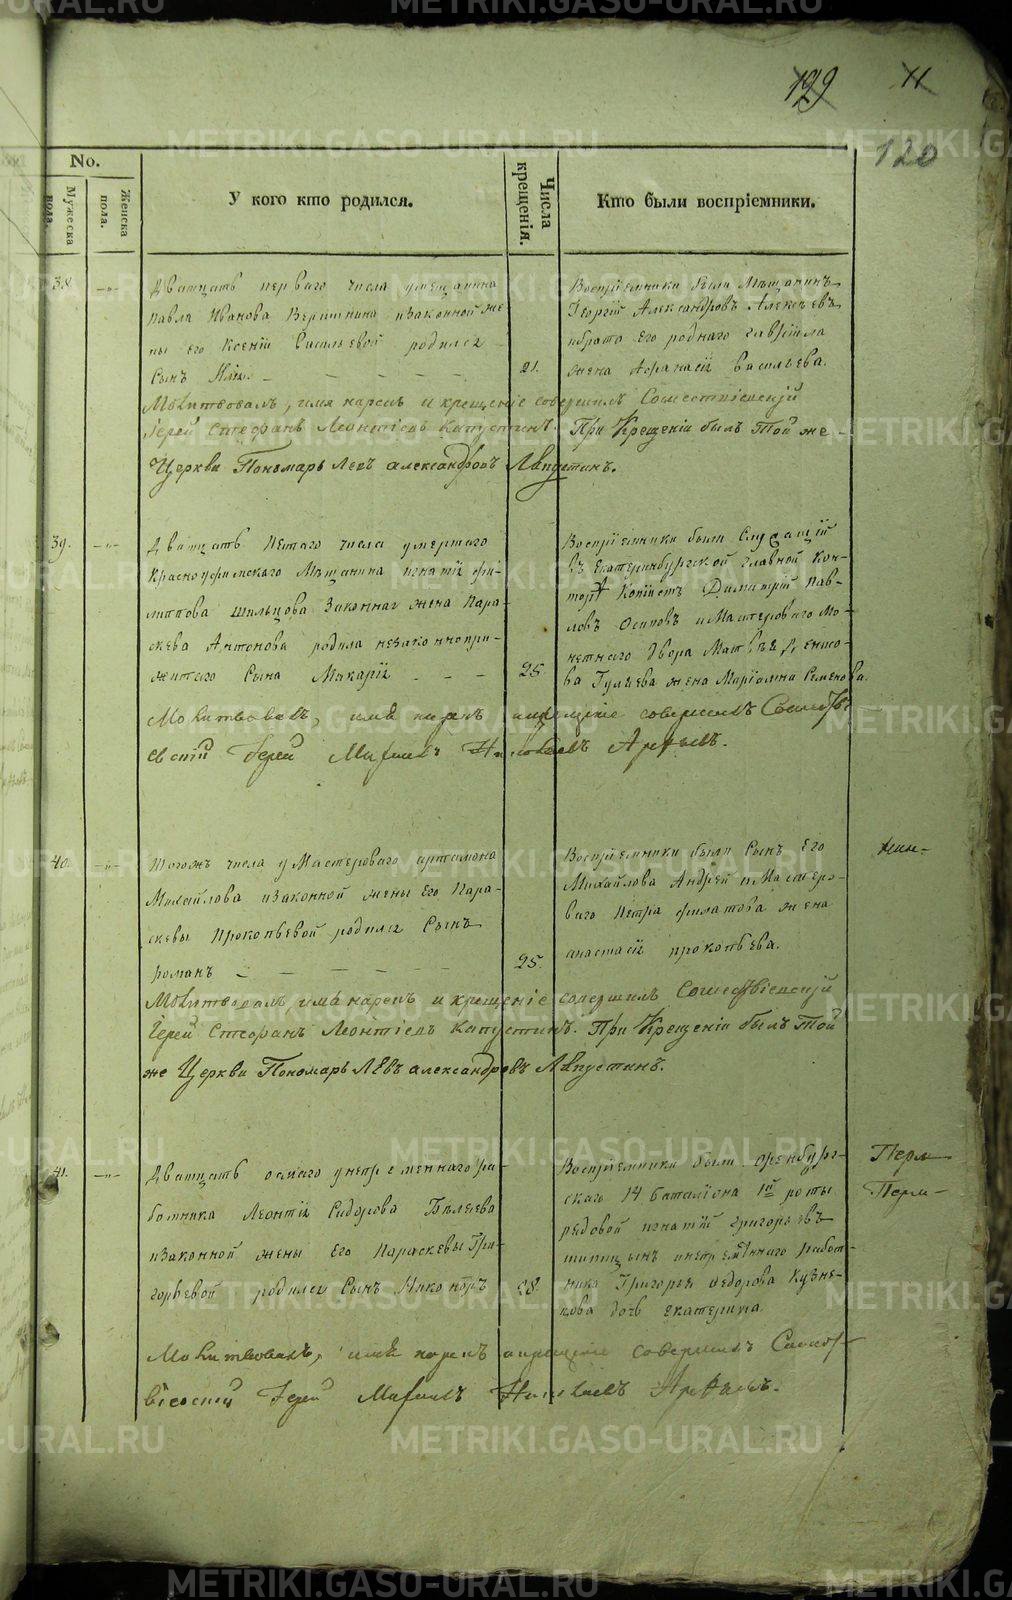 129 11
120
No.
Мужеска пола.
Женска пола.
У кого кто родился.
Числа крещенія.
Кто были воспріемники.
38.
Дватцать перваго числа умещанина
Павла Иванова Вершинина изаконной же
ны его Ксеніи Васильевой родился
Сынъ Илія.
21.
Воспріемники были Мѣщанинъ
Георгій Александровъ Алексѣевъ
ибрата его роднаго Гавріила
жена Афанасія Васильева.
Молитвовалъ, имя нарекъ и крещеніе совершилъ Сошествіевскій
Іерей Стефанъ Леонтіевъ Капустинъ. При Крещеніи былъ Той же
Церкви Пономарь Левъ александровъ
39.
Дватцать Петаго числа умершаго
Красноуфимскаго Мѣщанина игнатія фи-
липпова Шильцова Законная жена Пара-
скева Антонова родила незаконнопри-
житаго Сына Макарія
25
Воспріемники были Служащій
въ Екатеринбургской главной Кон-
торѣ Копіистъ Димитрій Пав-
ловъ Осиповъ и Мастероваго Мо-
нетнаго двора Матвѣя Денисо-
ва Гулѣева жена Маріанна Семенова.
Молитвовалъ, имя нарекъ икрещеніе совершилъ Сошест-
Іерей Николаевъ
40.
Тогожъ числа у Мастероваго артамона
Михайлова изаконной жены Его Пара-
скевы Прокопьевой родился Сынъ
романъ
25.
Воспріемники были Сынъ Его
Михайлова Андрей и Мастеро-
ваго Петра филатова жена
анастасія прокопьева.
Молитвовалъ, имя нарекъ и крещеніе совершилъ Сошествіевскій
Іерей Стефанъ Леонтіевъ Капустинъ. При Крещеніи былъ Той
же Церкви Пономарь Левъ александровъ
41.
Дватцать осмаго унепременнаго ра-
ботника Леонтія Сидорова Бѣлѣева
изаконной жены Его Параскевы Гри-
горьевой родился Сынъ Никоноръ
28.
Воспріемники были оренбург-
скаго 14 баталіона 1й роты
рядовой игнатій григорьевъ
инепремѣннаго работ-
ника Григорья Федорова Кузне-
цова дочь екатерина.
Перм
Перм
Молитвовалъ, имя нарекъ икрещеніе совершилъ Сошест-
віевскій Іерей Николаевъ
METRIKI.GASO-URAL.RU